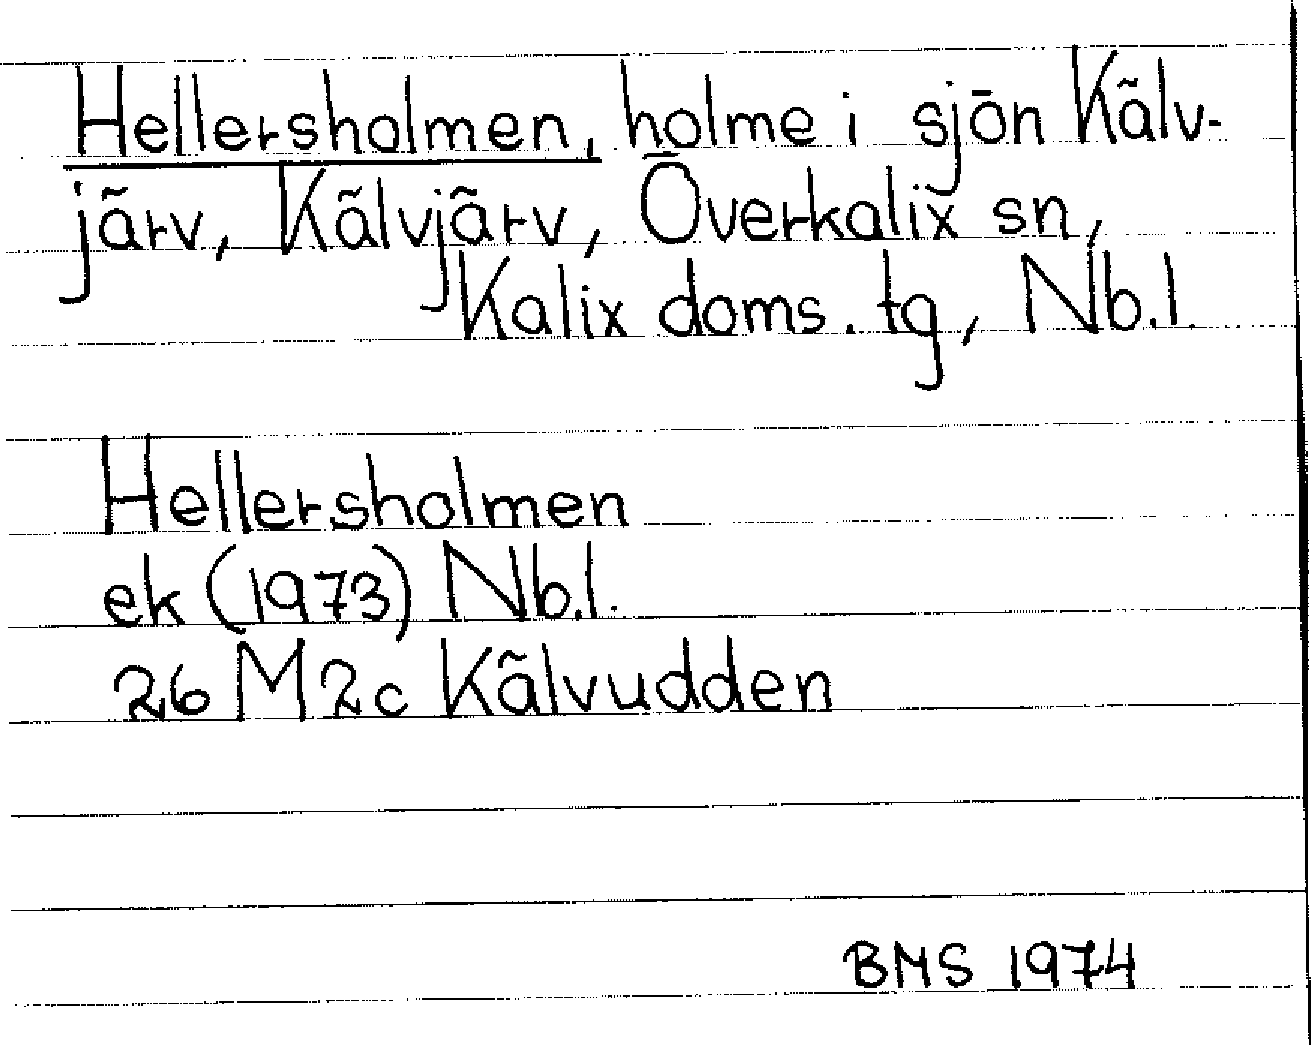 Hellersholmen, holme i sjön Kälv-
järv, Kälvjärv, Överkalix sn,
Kalix doms. tg, Nb.l.
Hellersholmen
ek (1973) Nb.l.
26 M 2c Kälvudden
BMS 1974